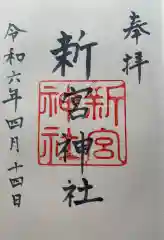 奉拝
新宮神社
新宮神社
令和六年四月十四日